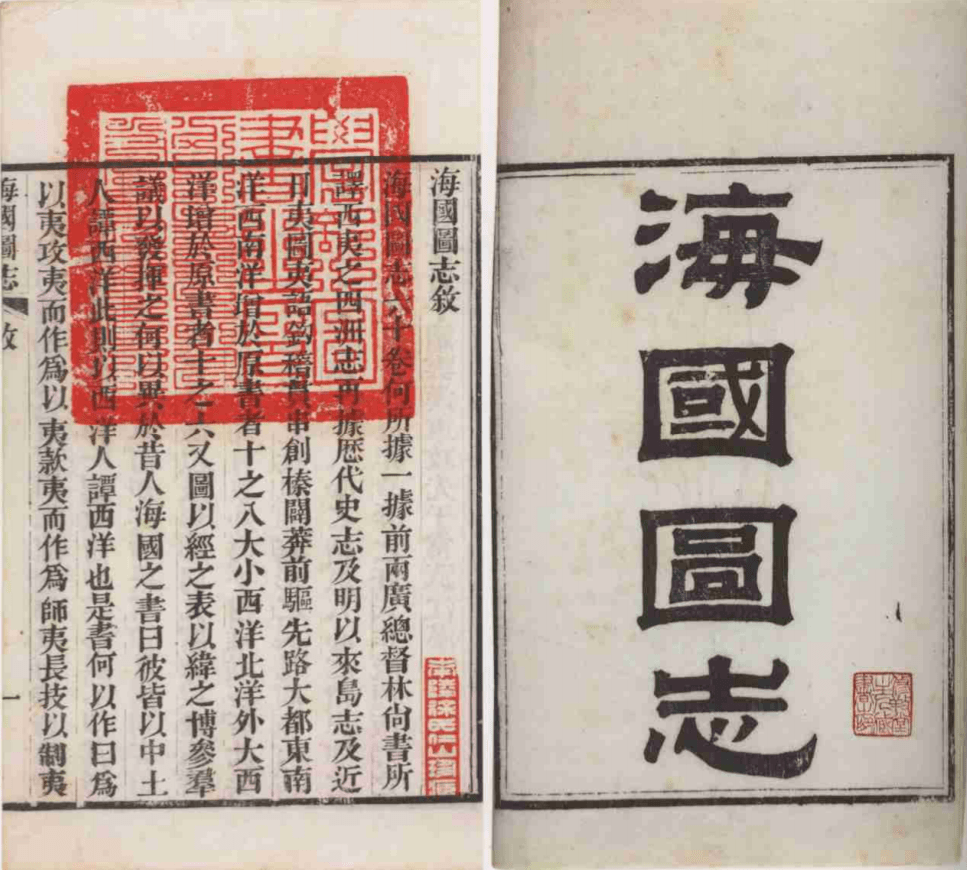 海國圖志
海國圖志敘
海國圖志六十卷何所據一據前兩廣總督林尚書所
譯西夷之四洲志再據歴代史志及明以來島志及近
日夷圖夷語鈎稽貫串創榛闢莽前驅先路大都東南
洋西南洋增於原書者十之八大小西洋北洋外大西
洋增於原書者十之六又圖以經之表以緯之博參羣
議以發揮之何以異於昔人海國之書曰彼皆以中土
人譚西洋此則以西洋人譚西洋也是書何以作曰爲
以夷攻夷而作爲以夷款夷而作爲師夷長技以制夷
海國圖志 敘 一